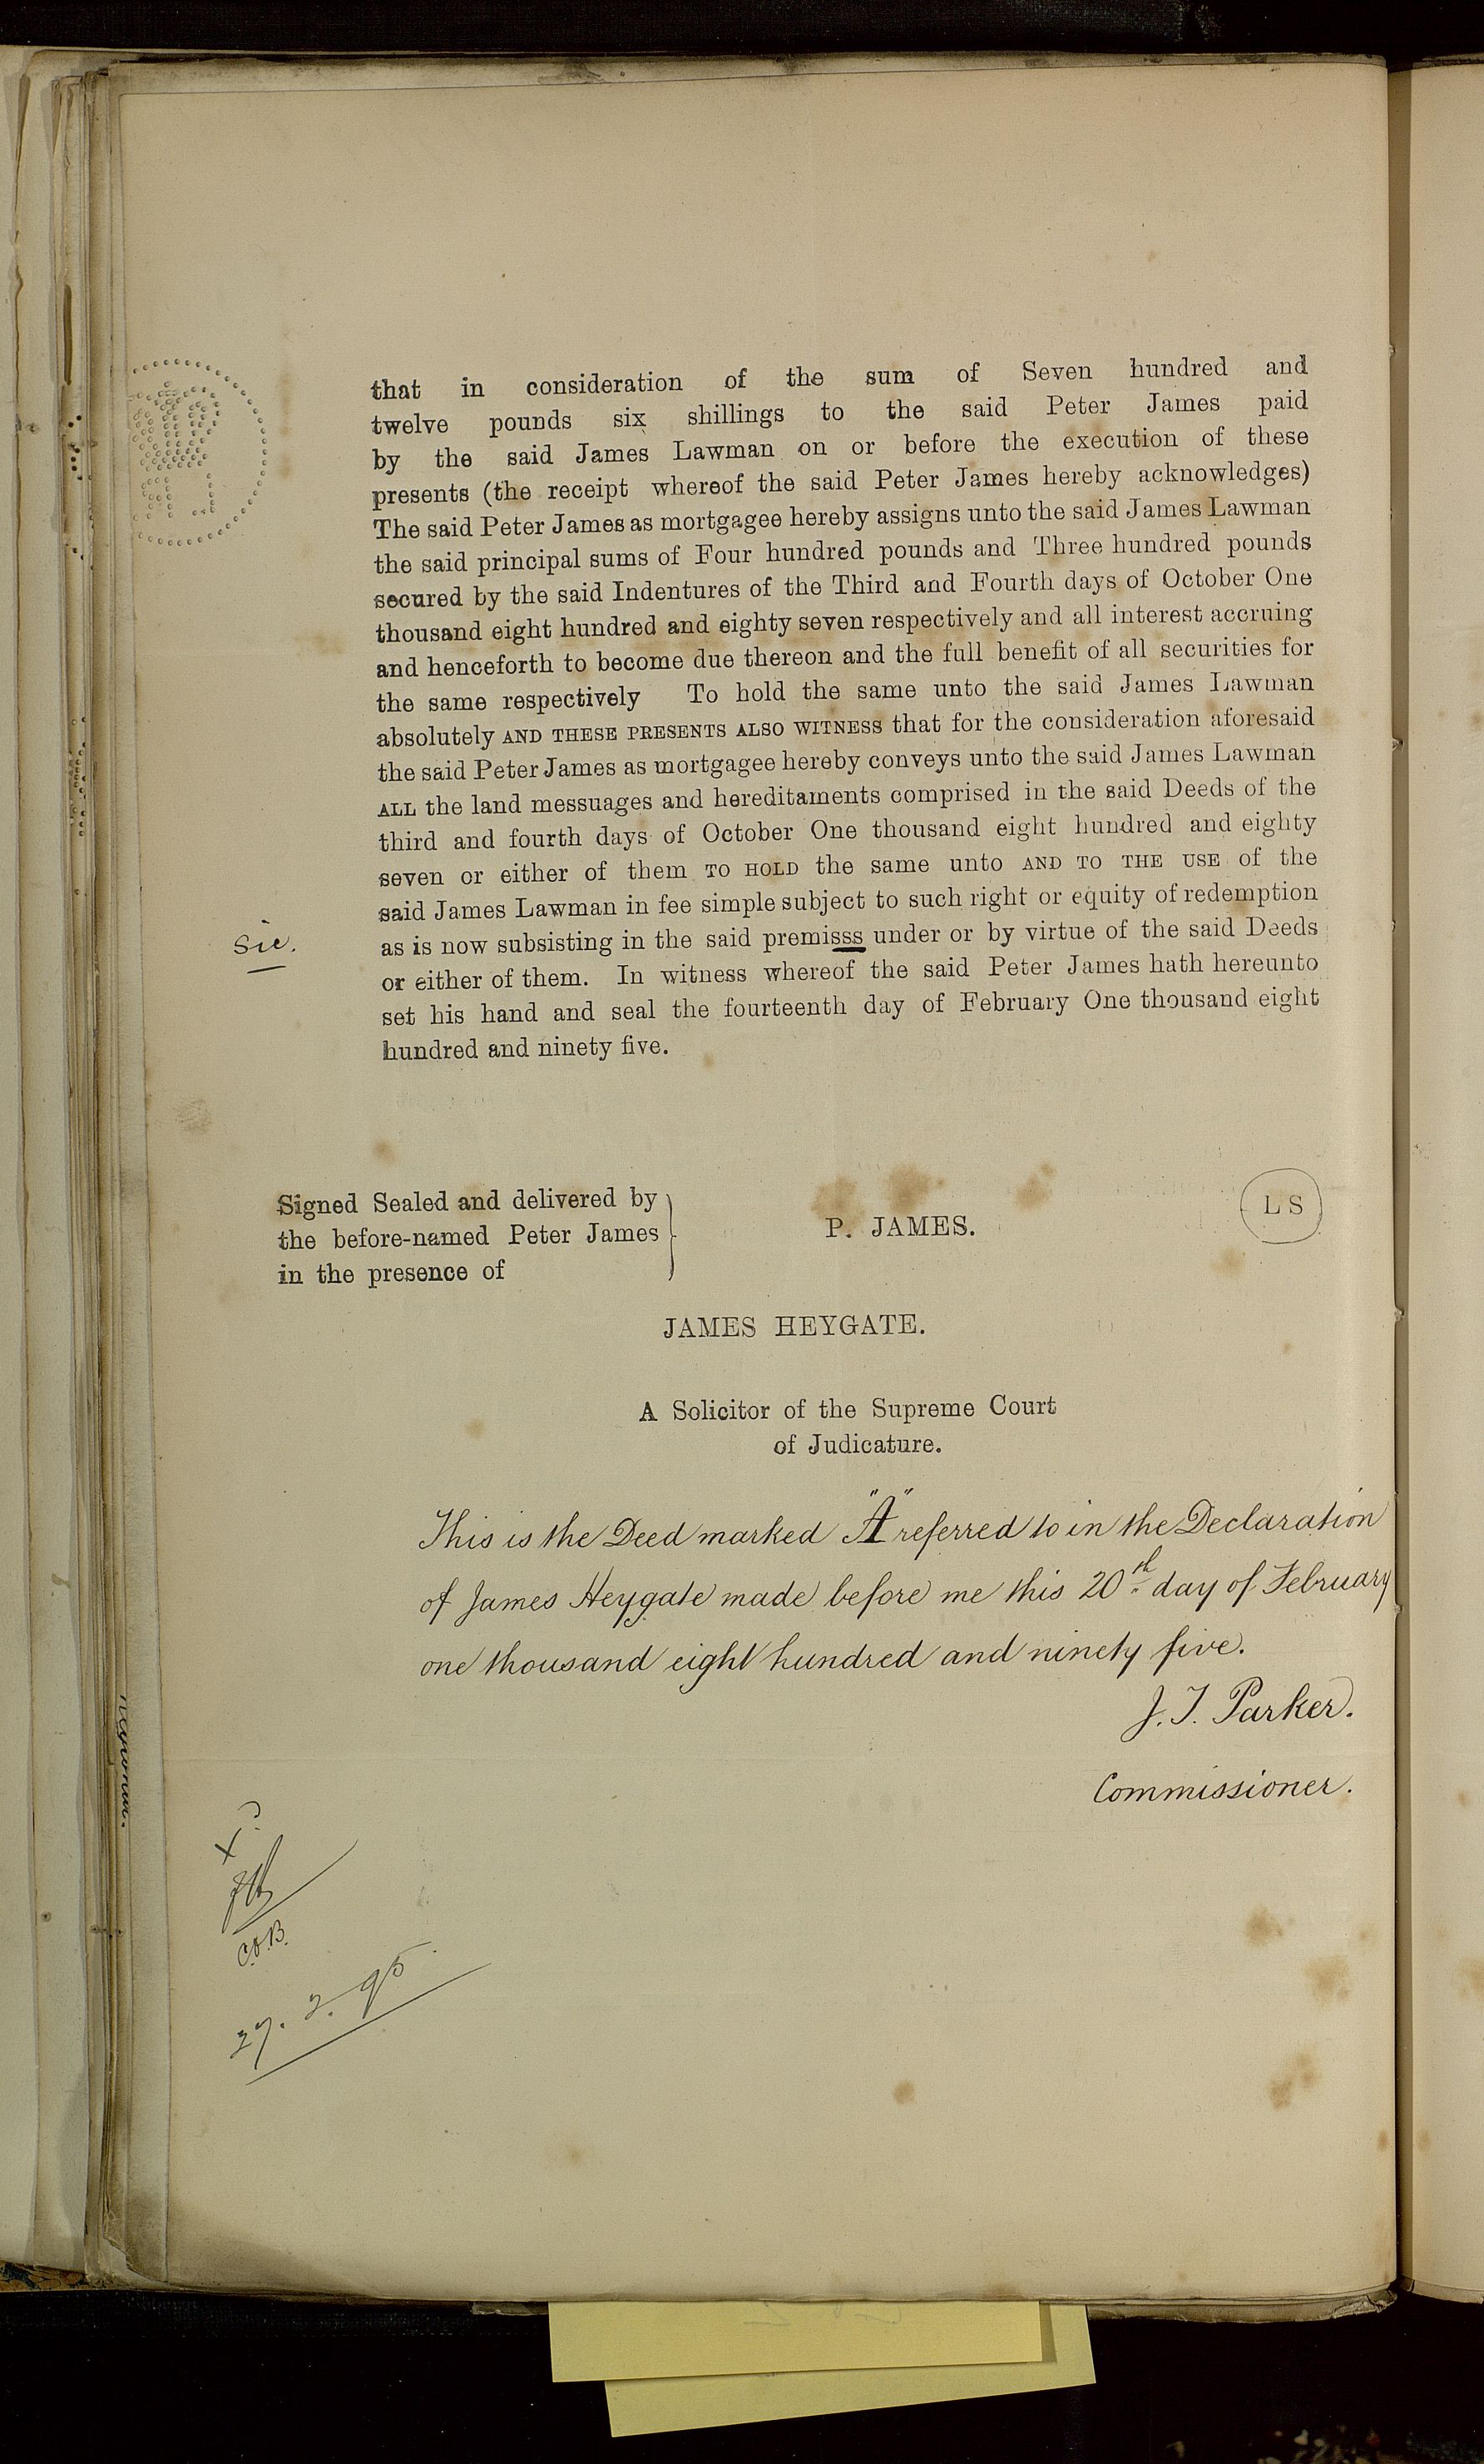 that in consideration of the sum of Seven hundred and
twelve pounds six shillings to the said Peter James paid
by the said James Lawman on or before the execution of these
presents (the receipt whereof the said Peter James hereby acknowledges)
The said Peter James as mortgagee hereby assigns unto the said James Lawman
the said principal sums of Four hundred pounds and Three hundred pounds
secured by the said Indentures of the Third and Fourth days of October One
thousand eight hundred and eighty seven respectively and all interest accruing
and henceforth to become due thereon and the full benefit of all securities for
the same respectively To hold the same unto the said James Lawman
absolutely AND THESE PRESENTS ALSO WITNESS that for the consideration aforesaid
the said Peter James as mortgagee hereby conveys unto the said James Lawman
ALL the land messuages and hereditaments comprised in the said Deeds of the
third and fourth days of October One thousand eight hundred and eighty
seven or either of them TO HOLD the same unto AND TO THE USE of the
said James Lawman in fee simple subject to such right or equity of redemption
sic.
as is now subsisting in the said premisss under or by virtue of the said Deeds
or either of them. In witness whereof the said Peter James hath hereunto
set his hand and seal the fourteenth day of February One thousand eight
hundred and ninety five.
Signed Sealed and delivered by
the before-named Peter James
in the presence of
P. JAMES.
L S
JAMES HEYGATE.
A Solicitor of the Supreme Court
of Judicature.
This is the Deed marked "A" referred to in the Declaration
of James Heygate made before me this 20th day of February
one thousand eight hundred and ninety five.
J. T. Parker.
Commissioner.
C.O.B.
27. 2. 95